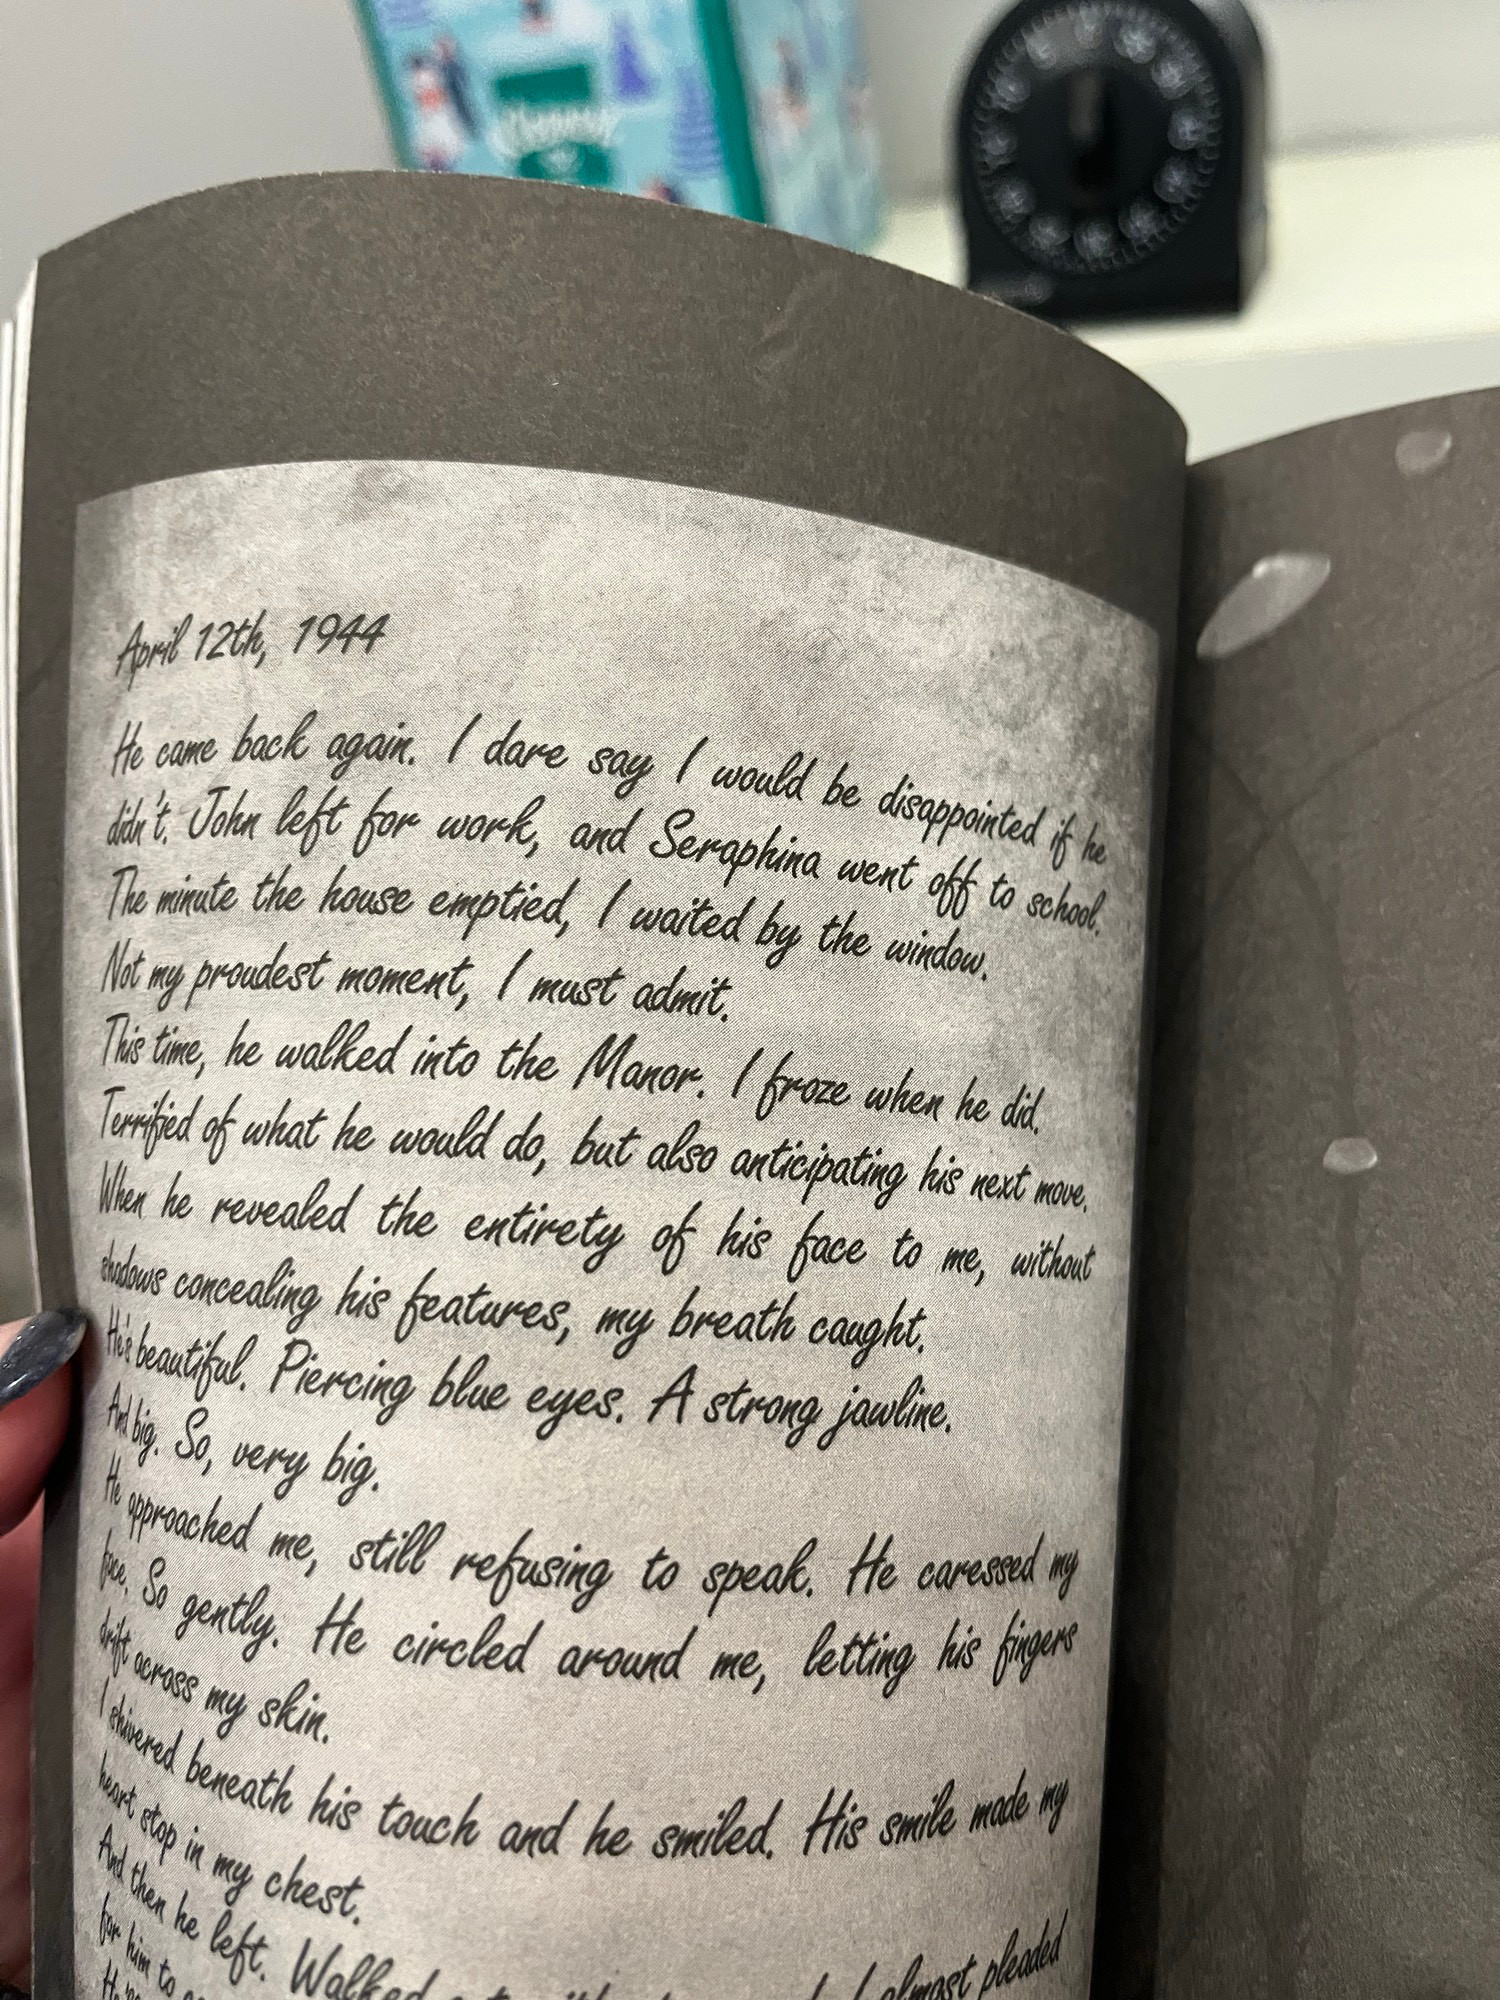 Kleenex
April 12th, 1944
He came back again. I dare say I would be disappointed if he
didn't. John left for work, and Seraphina went off to school.
The minute the house emptied, I waited by the window.
Not my proudest moment, I must admit.
This time, he walked into the Manor. I froze when he did.
Terrified of what he would do, but also anticipating his next move.
When he revealed the entirety of his face to me, without
shadows concealing his features, my breath caught.
He's beautiful. Piercing blue eyes. A strong jawline.
And big. So, very big.
He approached me, still refusing to speak. He caressed my
face. So gently. He circled around me, letting his fingers
drift across my skin.
I shivered beneath his touch and he smiled. His smile made my
heart stop in my chest.
And then he left. Walked I almost pleaded
for him to